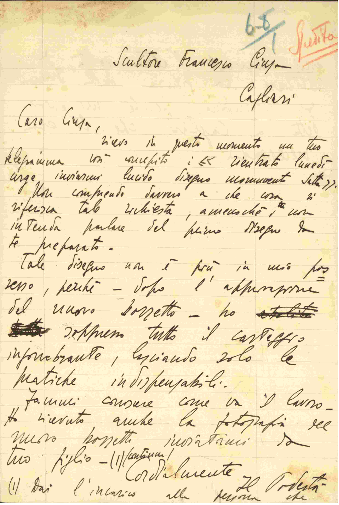 6-8
Spedita
Scultore Francesco Ciusa
Cagliari
Caro Ciusa,
ricevo in questo momento un tuo
telegramma così concepito: "rientrato lunedì
urge inviarmi lucido disegno monumento Satta".
Non comprendo davvero a che cosa si
riferisca tale richiesta, a meno che tu non
intenda parlare del primo disegno da
te preparato.
Tale disegno non è più in mio pos
sesso, perché - dopo l'approvazione
del nuovo bozzetto - ho
soppresso tutto il carteggio
ingombrante, lasciando solo le
pratiche indispensabili.
Fammi conoscere come va il lavoro -
Ho ricevuto anche la fotografia del
nuovo bozzetto inviatami da
tuo figlio - (1)
Cordialmente Il Podestà
(1) Dai l'incarico alla persona che